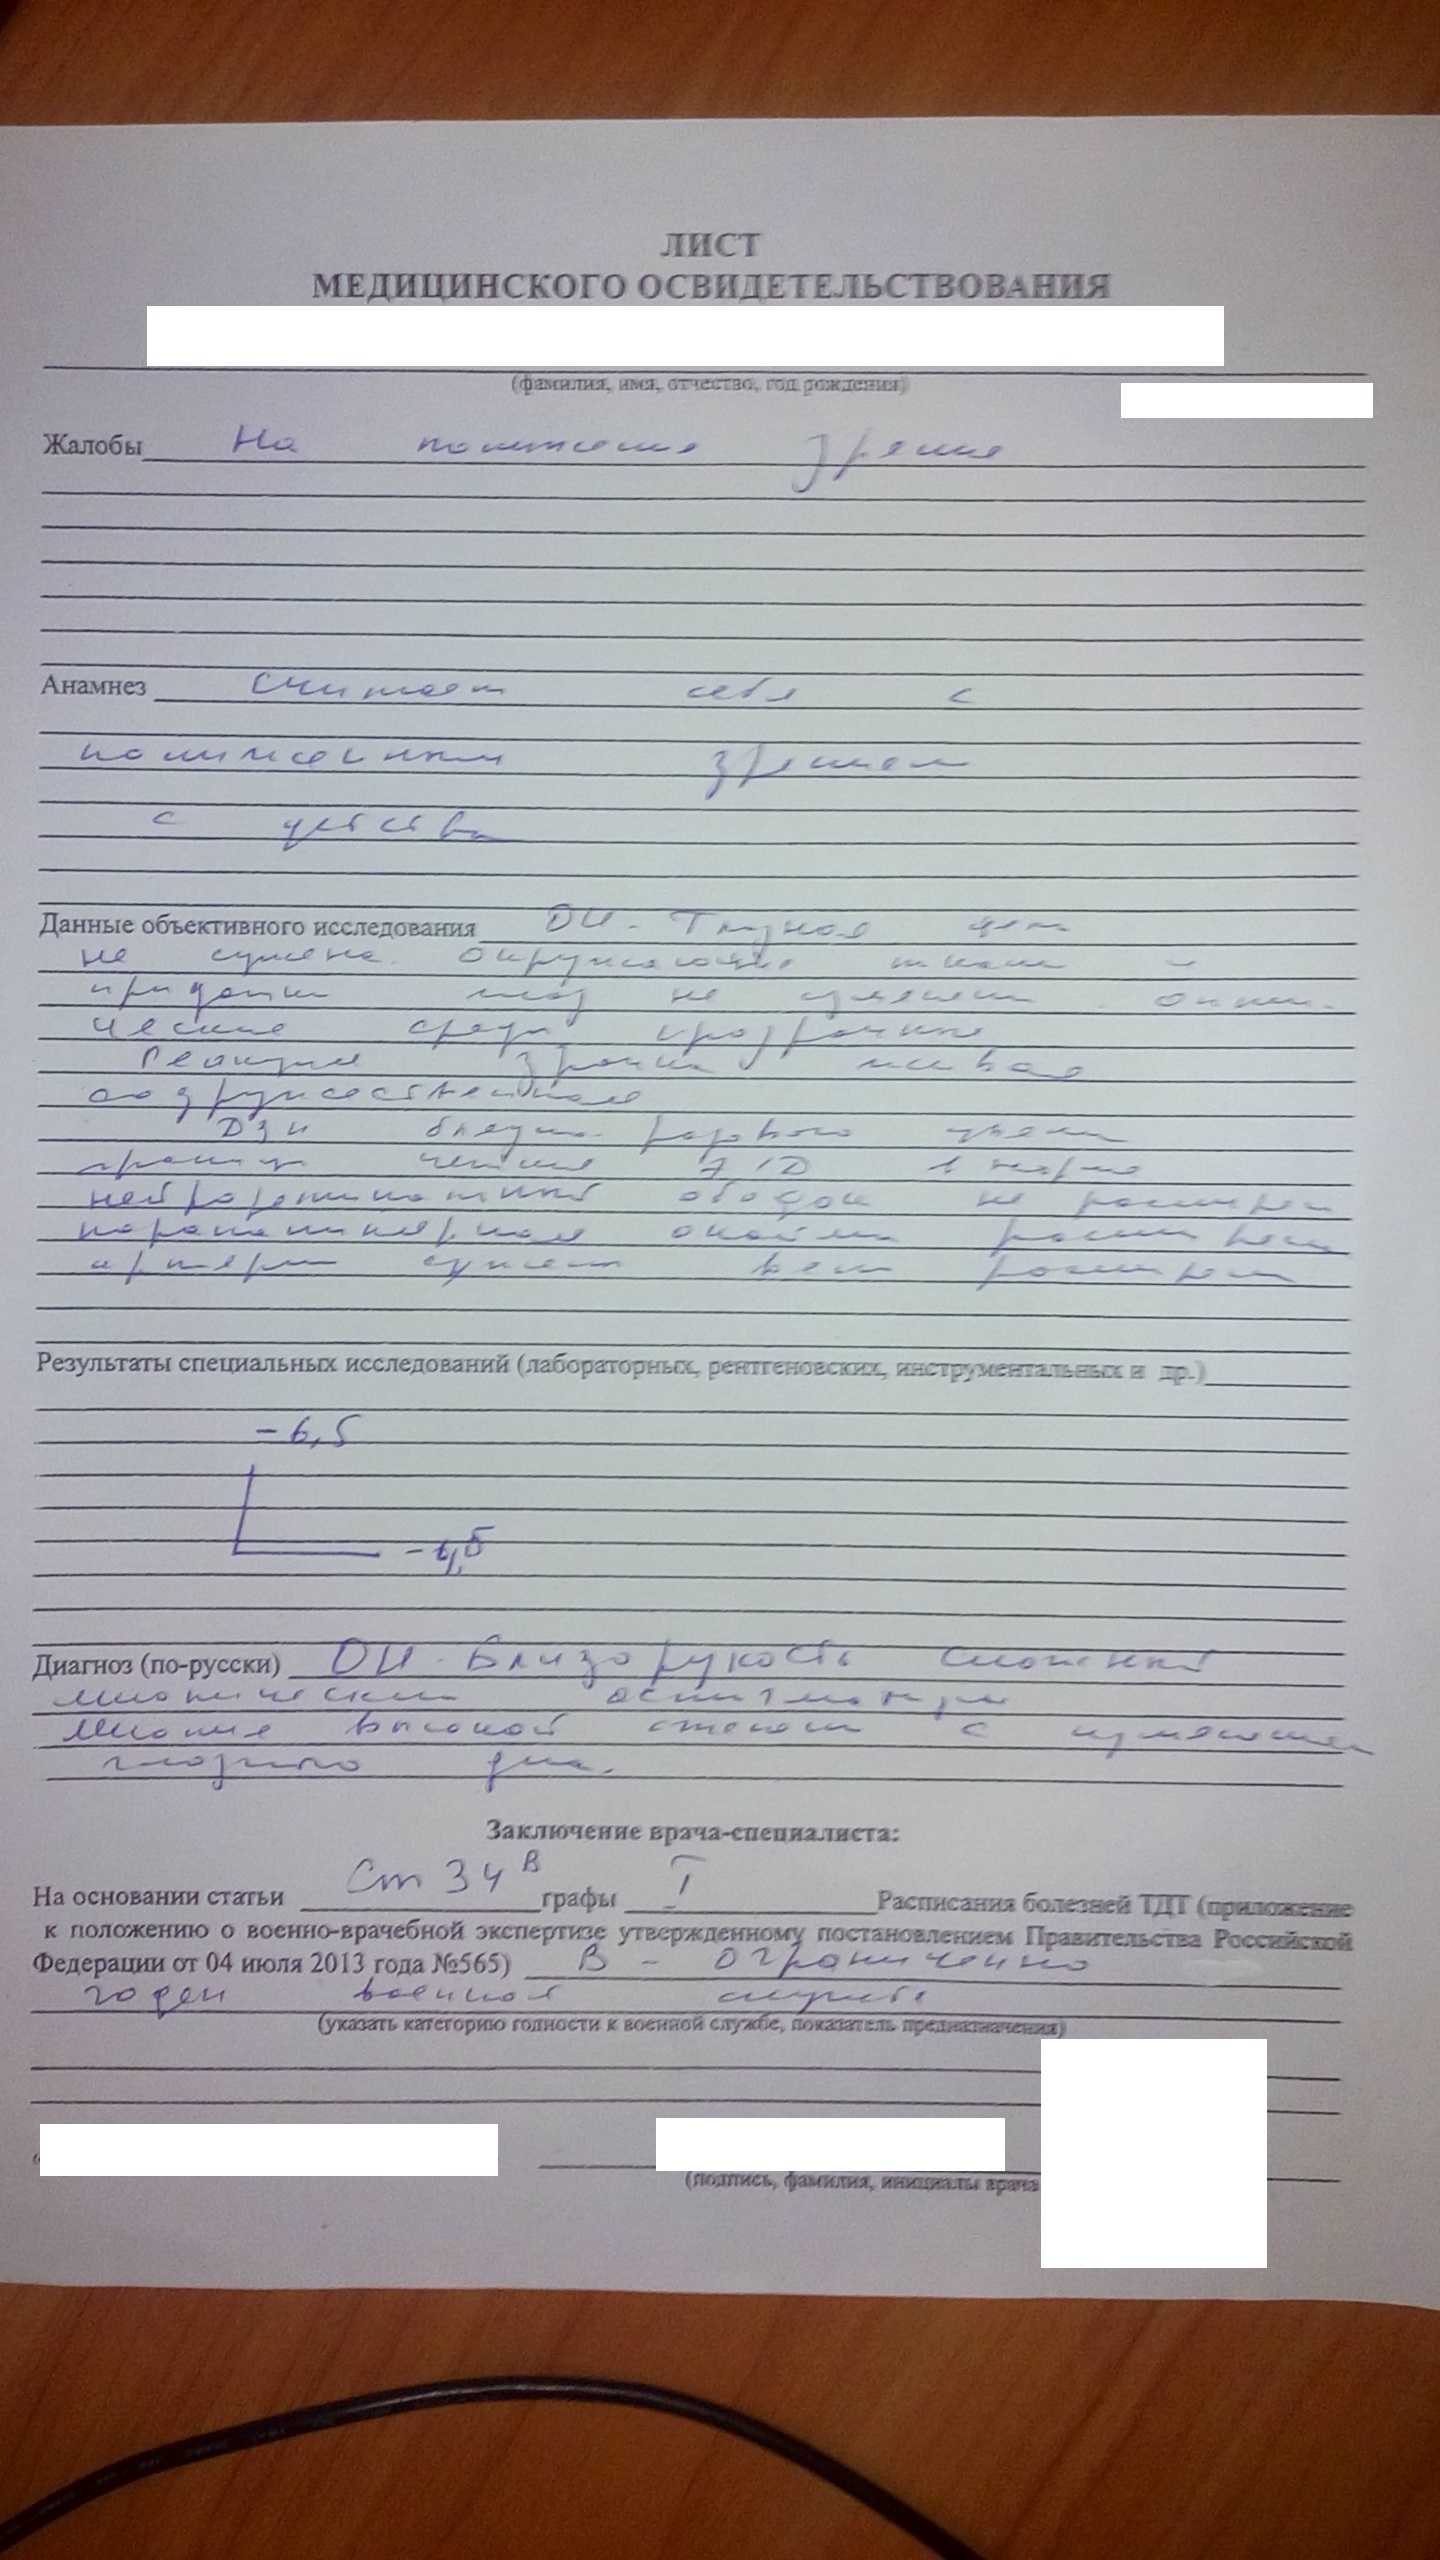 ЛИСТ
МЕДИЦИНСКОГО ОСВИДЕТЕЛЬСТВОВАНИЯ
(фамилия, имя, отчество, год рождения)
Жалобы На понижение зрения
Анамнез Считает себя с
пониженным зрением
с детства
Данные объективного исследования ОИ - Глазная щель
не сужена. Окружающие ткани и
придатки глаз не изменены. Опти-
ческие среды прозрачные
Реакция зрачка живая
содружественная
ДЗН бледно-розового цвета
границы четкие Э/Д в норме
нейроретинальный ободок не расширен
перипапиллярная расширен
артерии сужены вены расширены
Результаты специальных исследований (лабораторных, рентгеновских, инструментальных и др.)
- 6,5
- 6,5
Диагноз (по-русски) ОИ - Близорукость Сложный
миопический астигматизм
Миопия высокой степени с изменением
глазного дна.
Заключение врача-специалиста:
На основании статьи Ст 34 В графы I Расписания болезней ТДТ (приложение
к положению о военно-врачебной экспертизе утвержденному постановлением Правительства Российской
Федерации от 04 июля 2013 года №565) В - ограниченно
годен военной службе
(указать категорию годности к военной службе, показатель предназначения)
(подпись, фамилия, инициалы врача